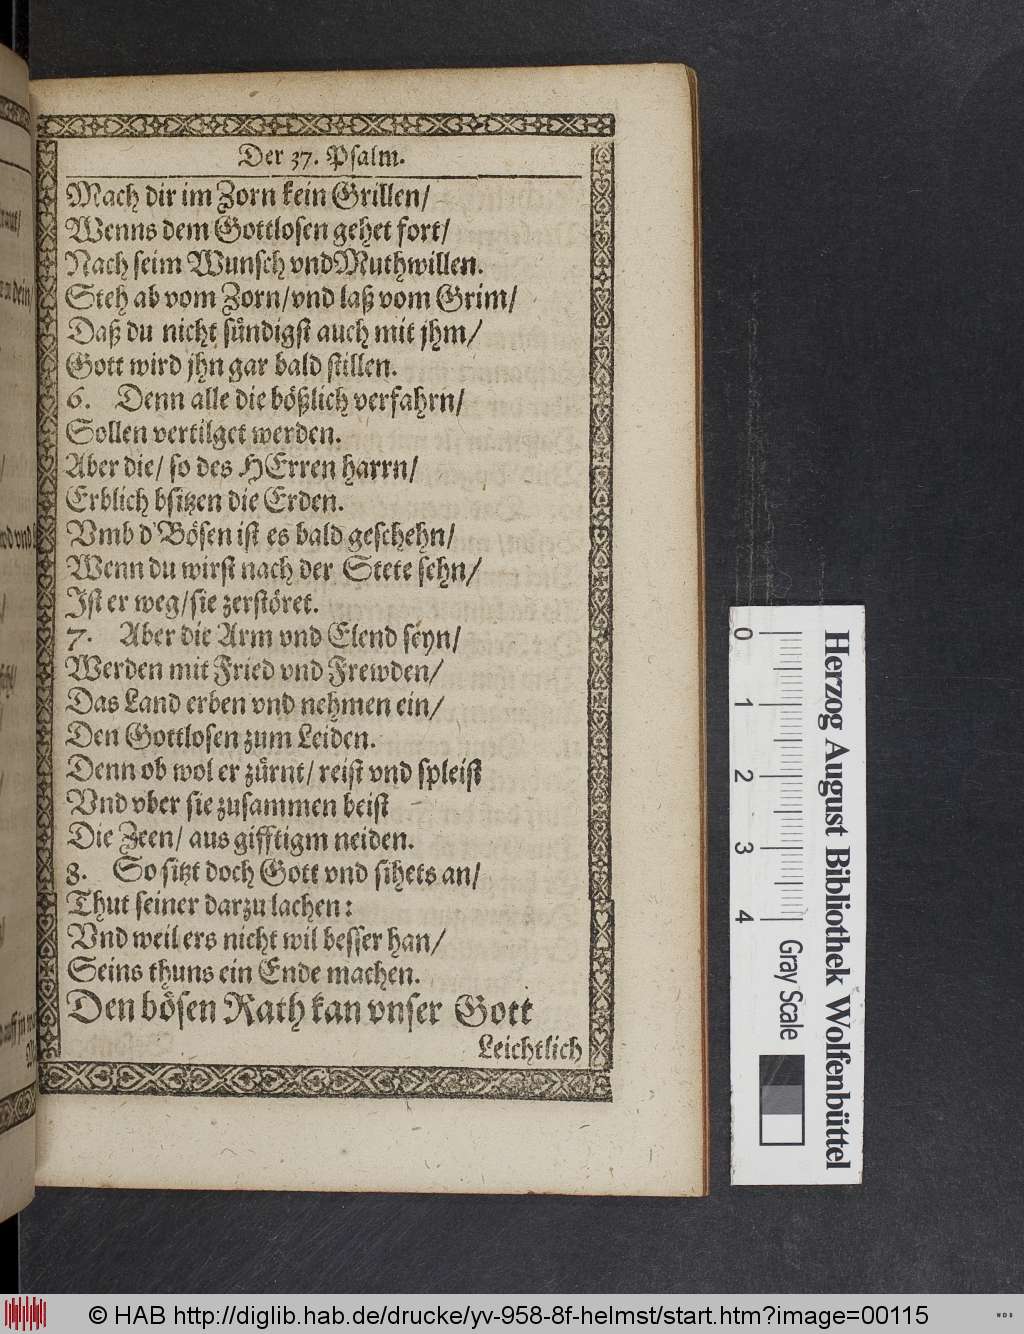 Der 37. Psalm.
Mach dir im Zorn kein Grillen/
Wenns dem Gottlosen gehet fort/
Nach seim Wunsch vndMuthwillen.
Steh ab vom Zorn/vnd laß vom Grim/
Daß du nicht suͤndigst auch mit jhm/
Gott wird jhn gar bald stillen.
6. Denn alle die boͤßlich verfahrn/
Sollen vertilget werden.
Aber die/ so des HErren harrn/
Erblich bsitzen die Erden.
Vmb d'Boͤsen ist es bald geschehn/
Wenn du wirst nach der Stete sehn/
Ist er weg/sie zerstoͤret.
7. Aber die Arm vnd Elend seyn/
Werden mit Fried vnd Frewden/
Das Land erben vnd nehmen ein/
Den Gottlosen zum Leiden.
Denn ob wol er zuͤrnt/ reist vnd spleist
Vnd vber sie zusammen beist
Die Zeen/ aus gifftigm neiden.
8. So sitzt doch Gott vnd sihets an/
Thut seiner darzu lachen:
Vnd weil ers nicht wil besser han/
Seins thuns ein Ende machen.
Den boͤsen Rath kan vnser Gott
Leichtlich
0 1 2 3 4
Gray Scale
Herzog August Bibliothek Wolfenbüttel
© HAB http://diglib.hab.de/drucke/yv-958-8f-helmst/start.htm?image=00115